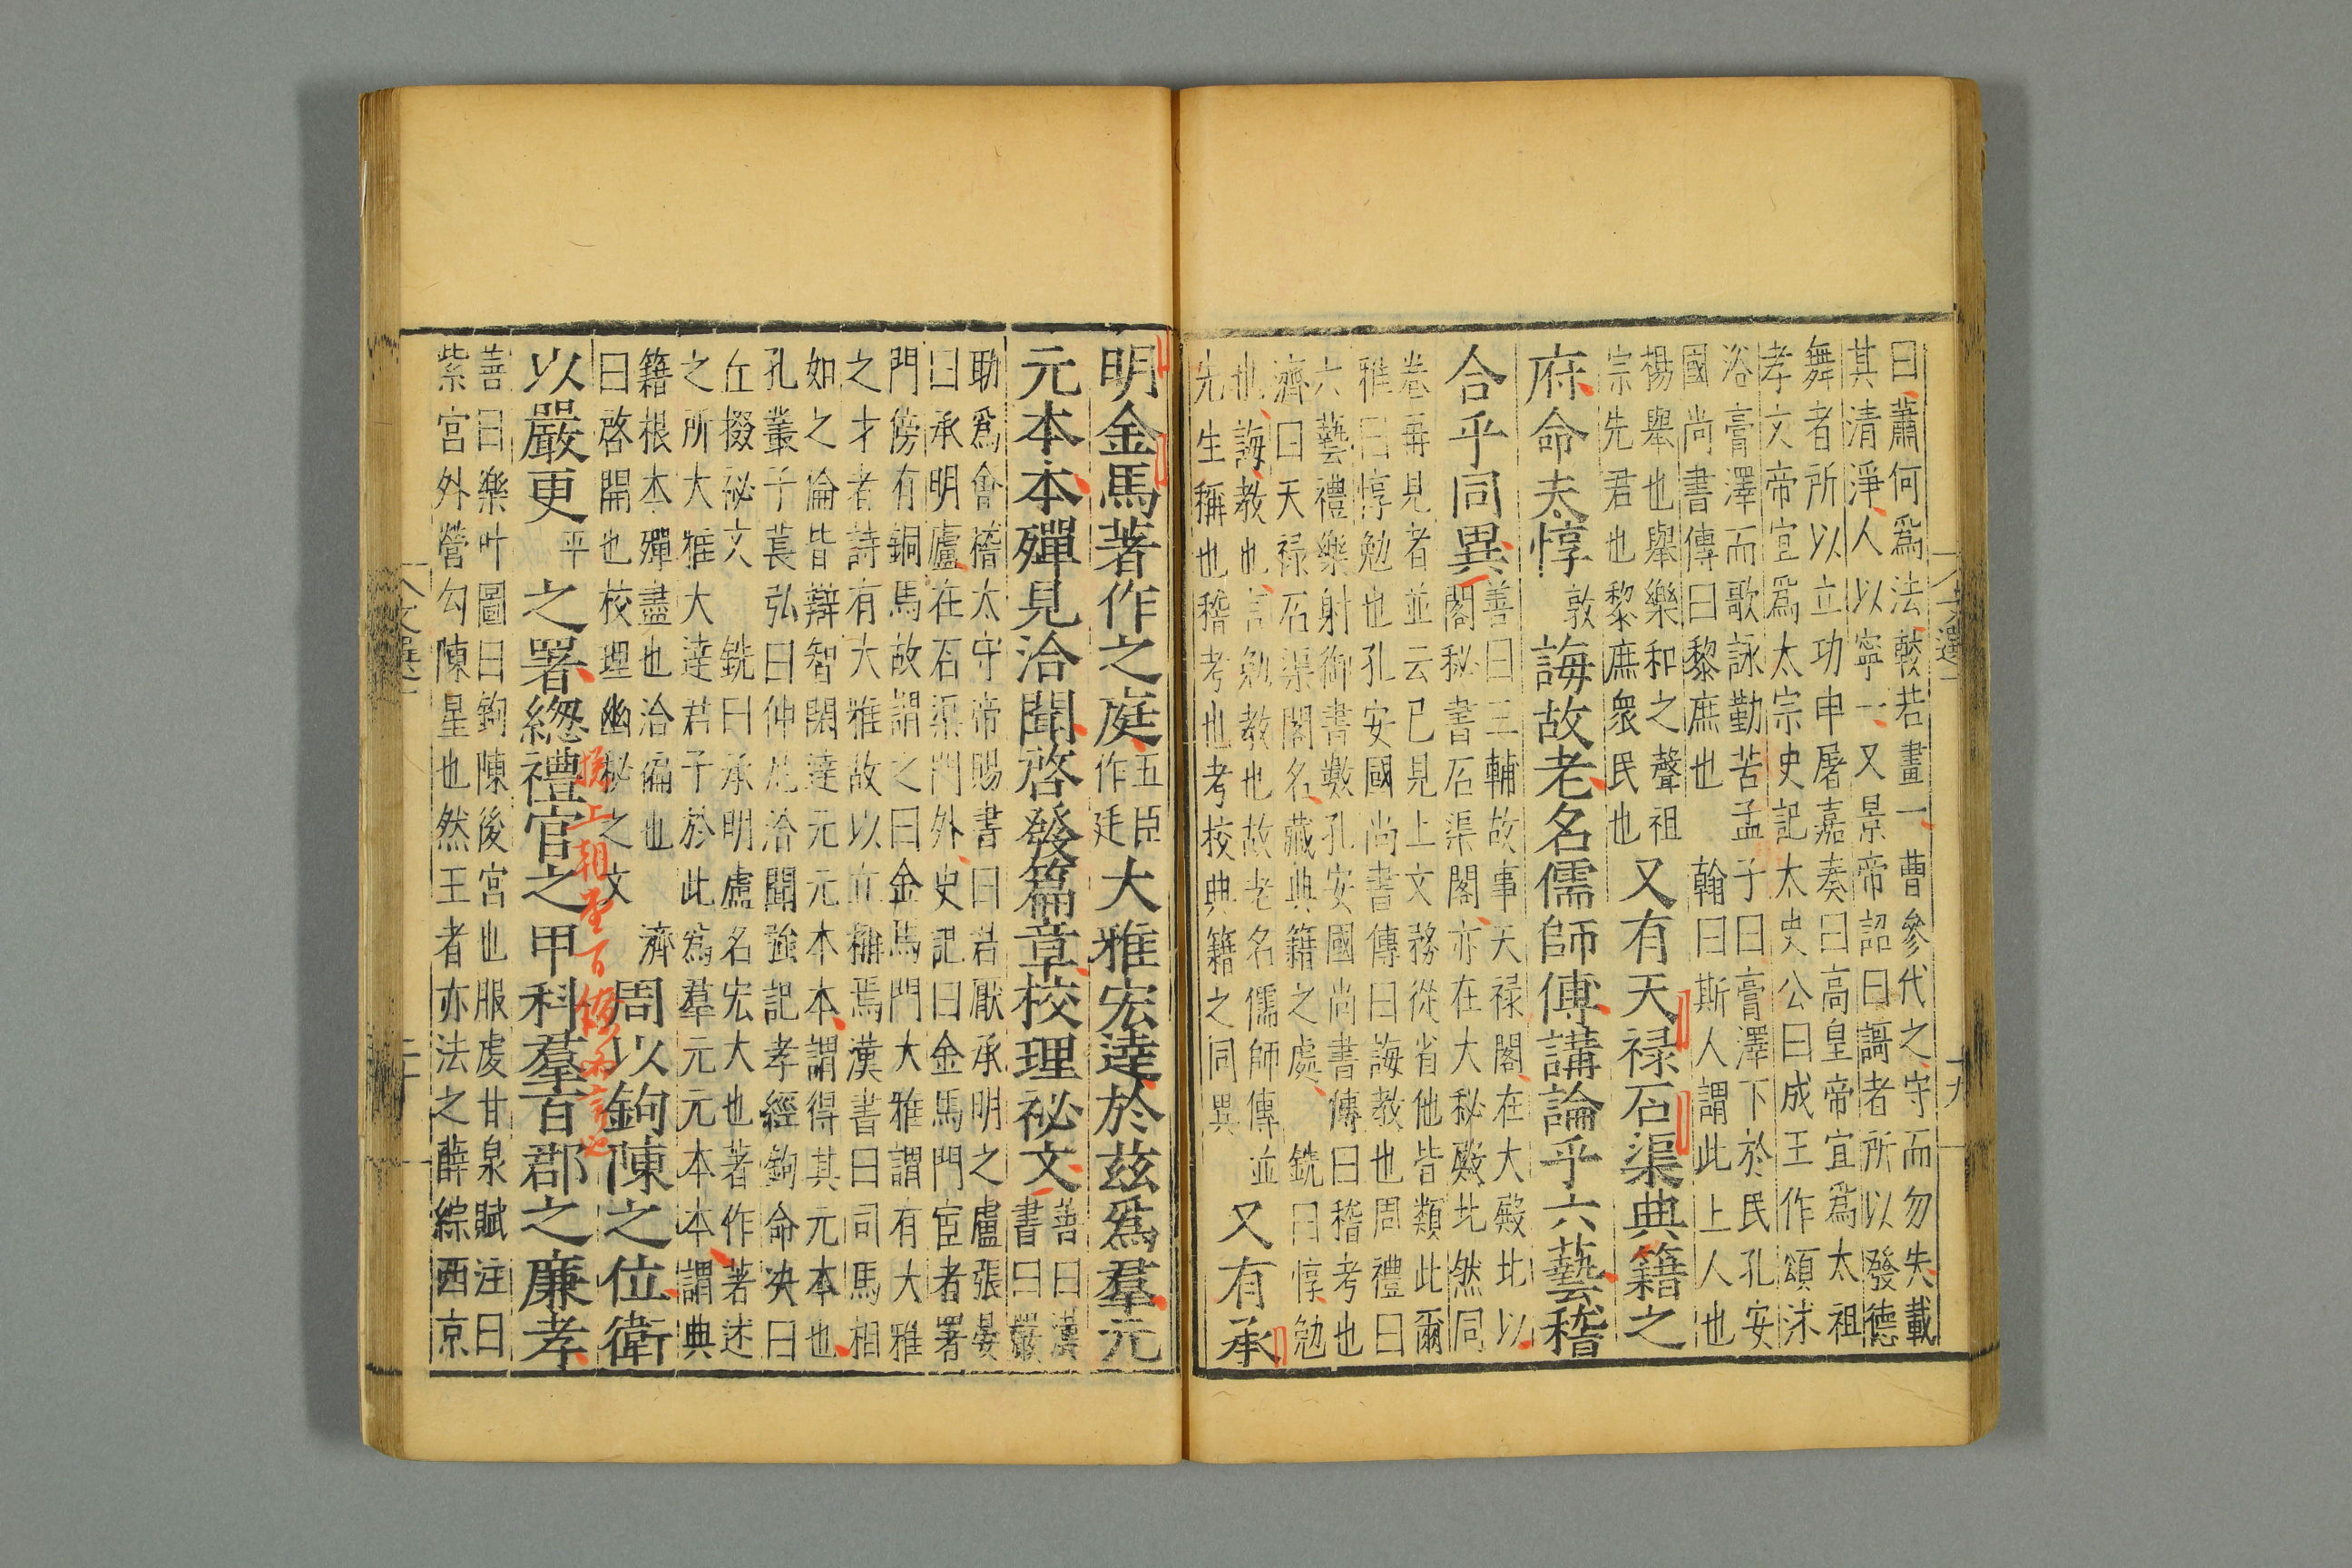 曰蕭何爲法較若畫一曹參代之守而勿失載
其清淨人以寧一又景帝詔曰謌者所以發德
舞者所以立功申屠嘉奏曰高皇帝宜爲太祖
孝文帝宜爲太宗史記太史公曰成王作頌沫
浴膏澤而歌詠勤苦孟子曰膏澤下於民孔安
國尚書傳曰黎庶也 翰曰斯人謂此上人也
楊舉也舉樂和之聲祖
宗先君也黎庶衆民也
又有天禄石渠典籍之
府命夫惇敦誨故老名儒師傅講論乎六藝稽
合乎同異
善曰三輔故事天禄閣在大殿北以
閣秘書石渠閣亦在大秘殿北然同
卷再見者並云已見上文務從省他皆類此爾
雅曰惇勉也孔安國尚書傳曰誨教也周禮曰
六藝禮樂射御書數孔安國尚書傳曰稽考也
濟曰天禄石渠閣名藏典籍之處 銑曰惇勉
也誨教也言勉教也故老名儒師傅並
先生稱也稽考也考校典籍之同異
又有承
文選一
十九
明金馬著作之庭五臣作廷大雅宏達於兹爲羣元
元本本殫見洽聞啓發篇章校理祕文
善曰漢
書曰嚴
助爲會稽太守帝賜書曰君厭承明之廬張晏
曰承明廬在石渠門外史記曰金馬門宦者署
門傍有銅馬故謂之曰金馬門大雅謂有大雅
之才者詩有大雅故以立稱焉漢書曰司馬相
如之倫皆辯智閎達元元本本謂得其元本也
孔叢子萇弘曰仲尼洽聞強記孝經鉤命決曰
丘掇祕文 銑曰承明廬名宏大也著作著述
之所大雅大達君子於此爲羣元元本本謂典
籍根本殫盡也洽徧也 濟
曰啓開也校理幽祕之文
周以鉤陳之位衛
以嚴更平之署緫禮官之甲科羣百郡之廉孝
善曰樂叶圖曰鉤陳後宮也服虔甘泉賦注曰
紫宮外營勾陳星也然王者亦法之薛綜西京
文選一